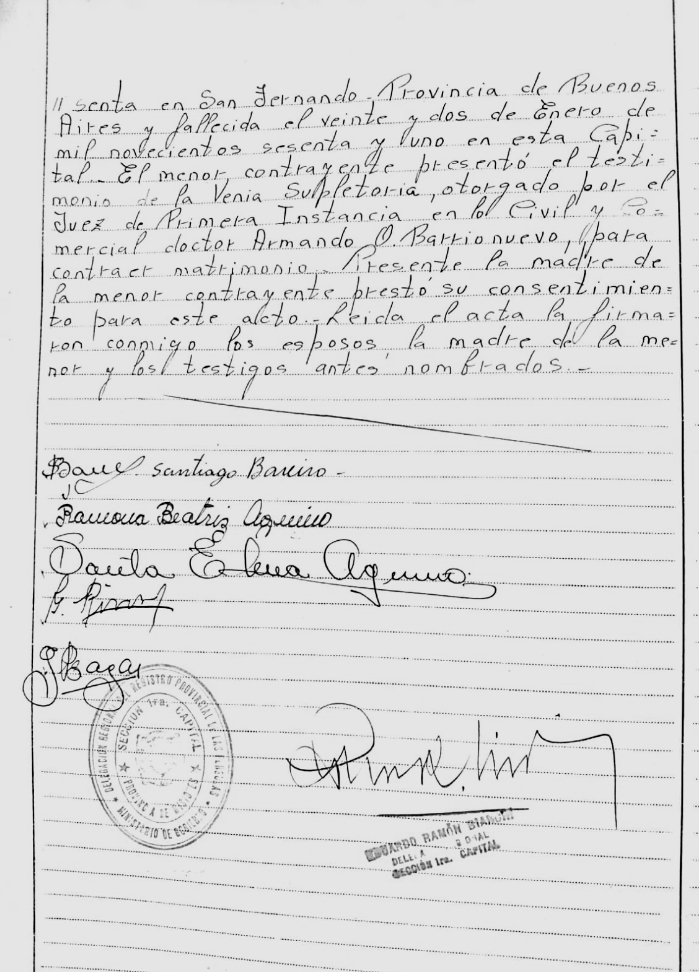 // senta en San Fernando - Provincia de Buenos
Aires y fallecida el veinte y dos de Enero de
mil novecientos sesenta y uno en esta Capi=
tal - El menor contrayente presentó el testi=
monio de la Venia Supletoria, otorgado por el
Juez de Primera Instancia en lo Civil y Co=
mercial doctor Armando O. Barrionuevo, para
contraer matrimonio. Presente la madre de
la menor contrayente prestó su consentimien=
to para este acto.- Leida el acta la firma=
ron conmigo los esposos, la madre de la me=
nor y los testigos antes nombrados. -
Santiago Bareiro -
Ramona Beatriz Aquino
Elena Aquino
DELEGACIÓN REGIONAL DEL REGISTRO PROVINCIAL DE LAS PERSONAS
SECCIÓN 1ra. CAPITAL
MINISTERIO DE GOBIERNO
EDUARDO RAMÓN BIANCHI
SECCIÓN 1ra. CAPITAL